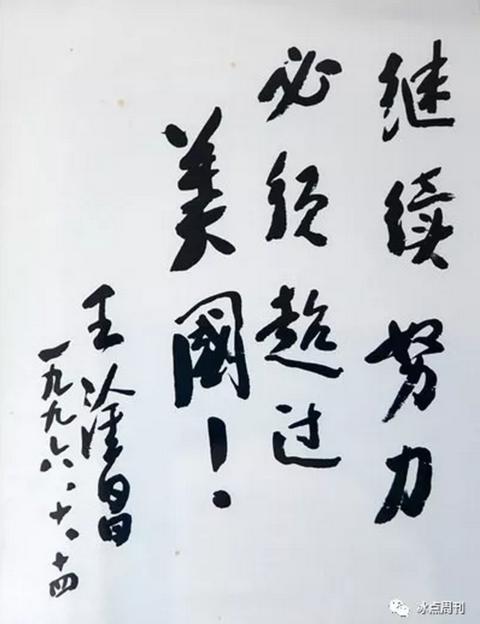 继續努力
必须超过
美國！
王淦昌
一九九六、十、十四
冰点周刊